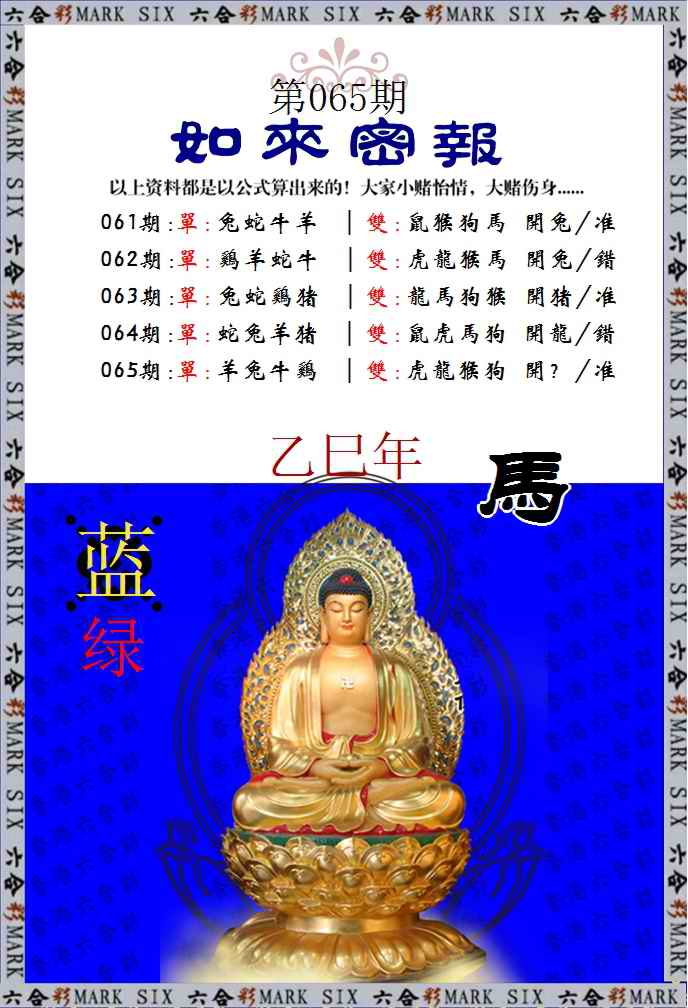 六合彩MARK SIX 六合彩MARK SIX 六合彩MARK SIX 六合彩MARK SIX 六合彩MARK SIX
第065期
如來密報
以上资料都是以公式算出来的！大家小赌怡情，大赌伤身......
061期:單:兔蛇牛羊 |雙:鼠猴狗馬 開兔/准
062期:單:鷄羊蛇牛 |雙:虎龍猴馬 開兔/錯
063期:單:兔蛇鷄猪 |雙:龍馬狗猴 開猪/准
064期:單:蛇兔羊猪 |雙:鼠虎馬狗 開龍/錯
065期:單:羊兔牛鷄 |雙:虎龍猴狗 開？/准
乙巳年
馬
蓝
绿
六合彩MARK SIX 六合彩MARK SIX 六合彩MARK SIX 六合彩MARK SIX 六合彩MARK SIX